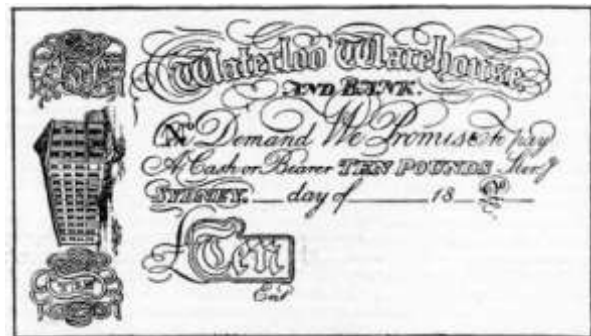 Waterloo Warehouse
AND BANK.
On Demand We Promise to pay
A. Cash or Bearer TEN POUNDS Ster.g
SYDNEY. day of 18
£Ten
Ent
TEN